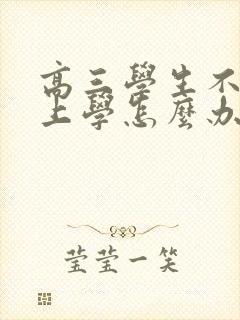 高三學生不
上學怎麼办
莹莹一笑